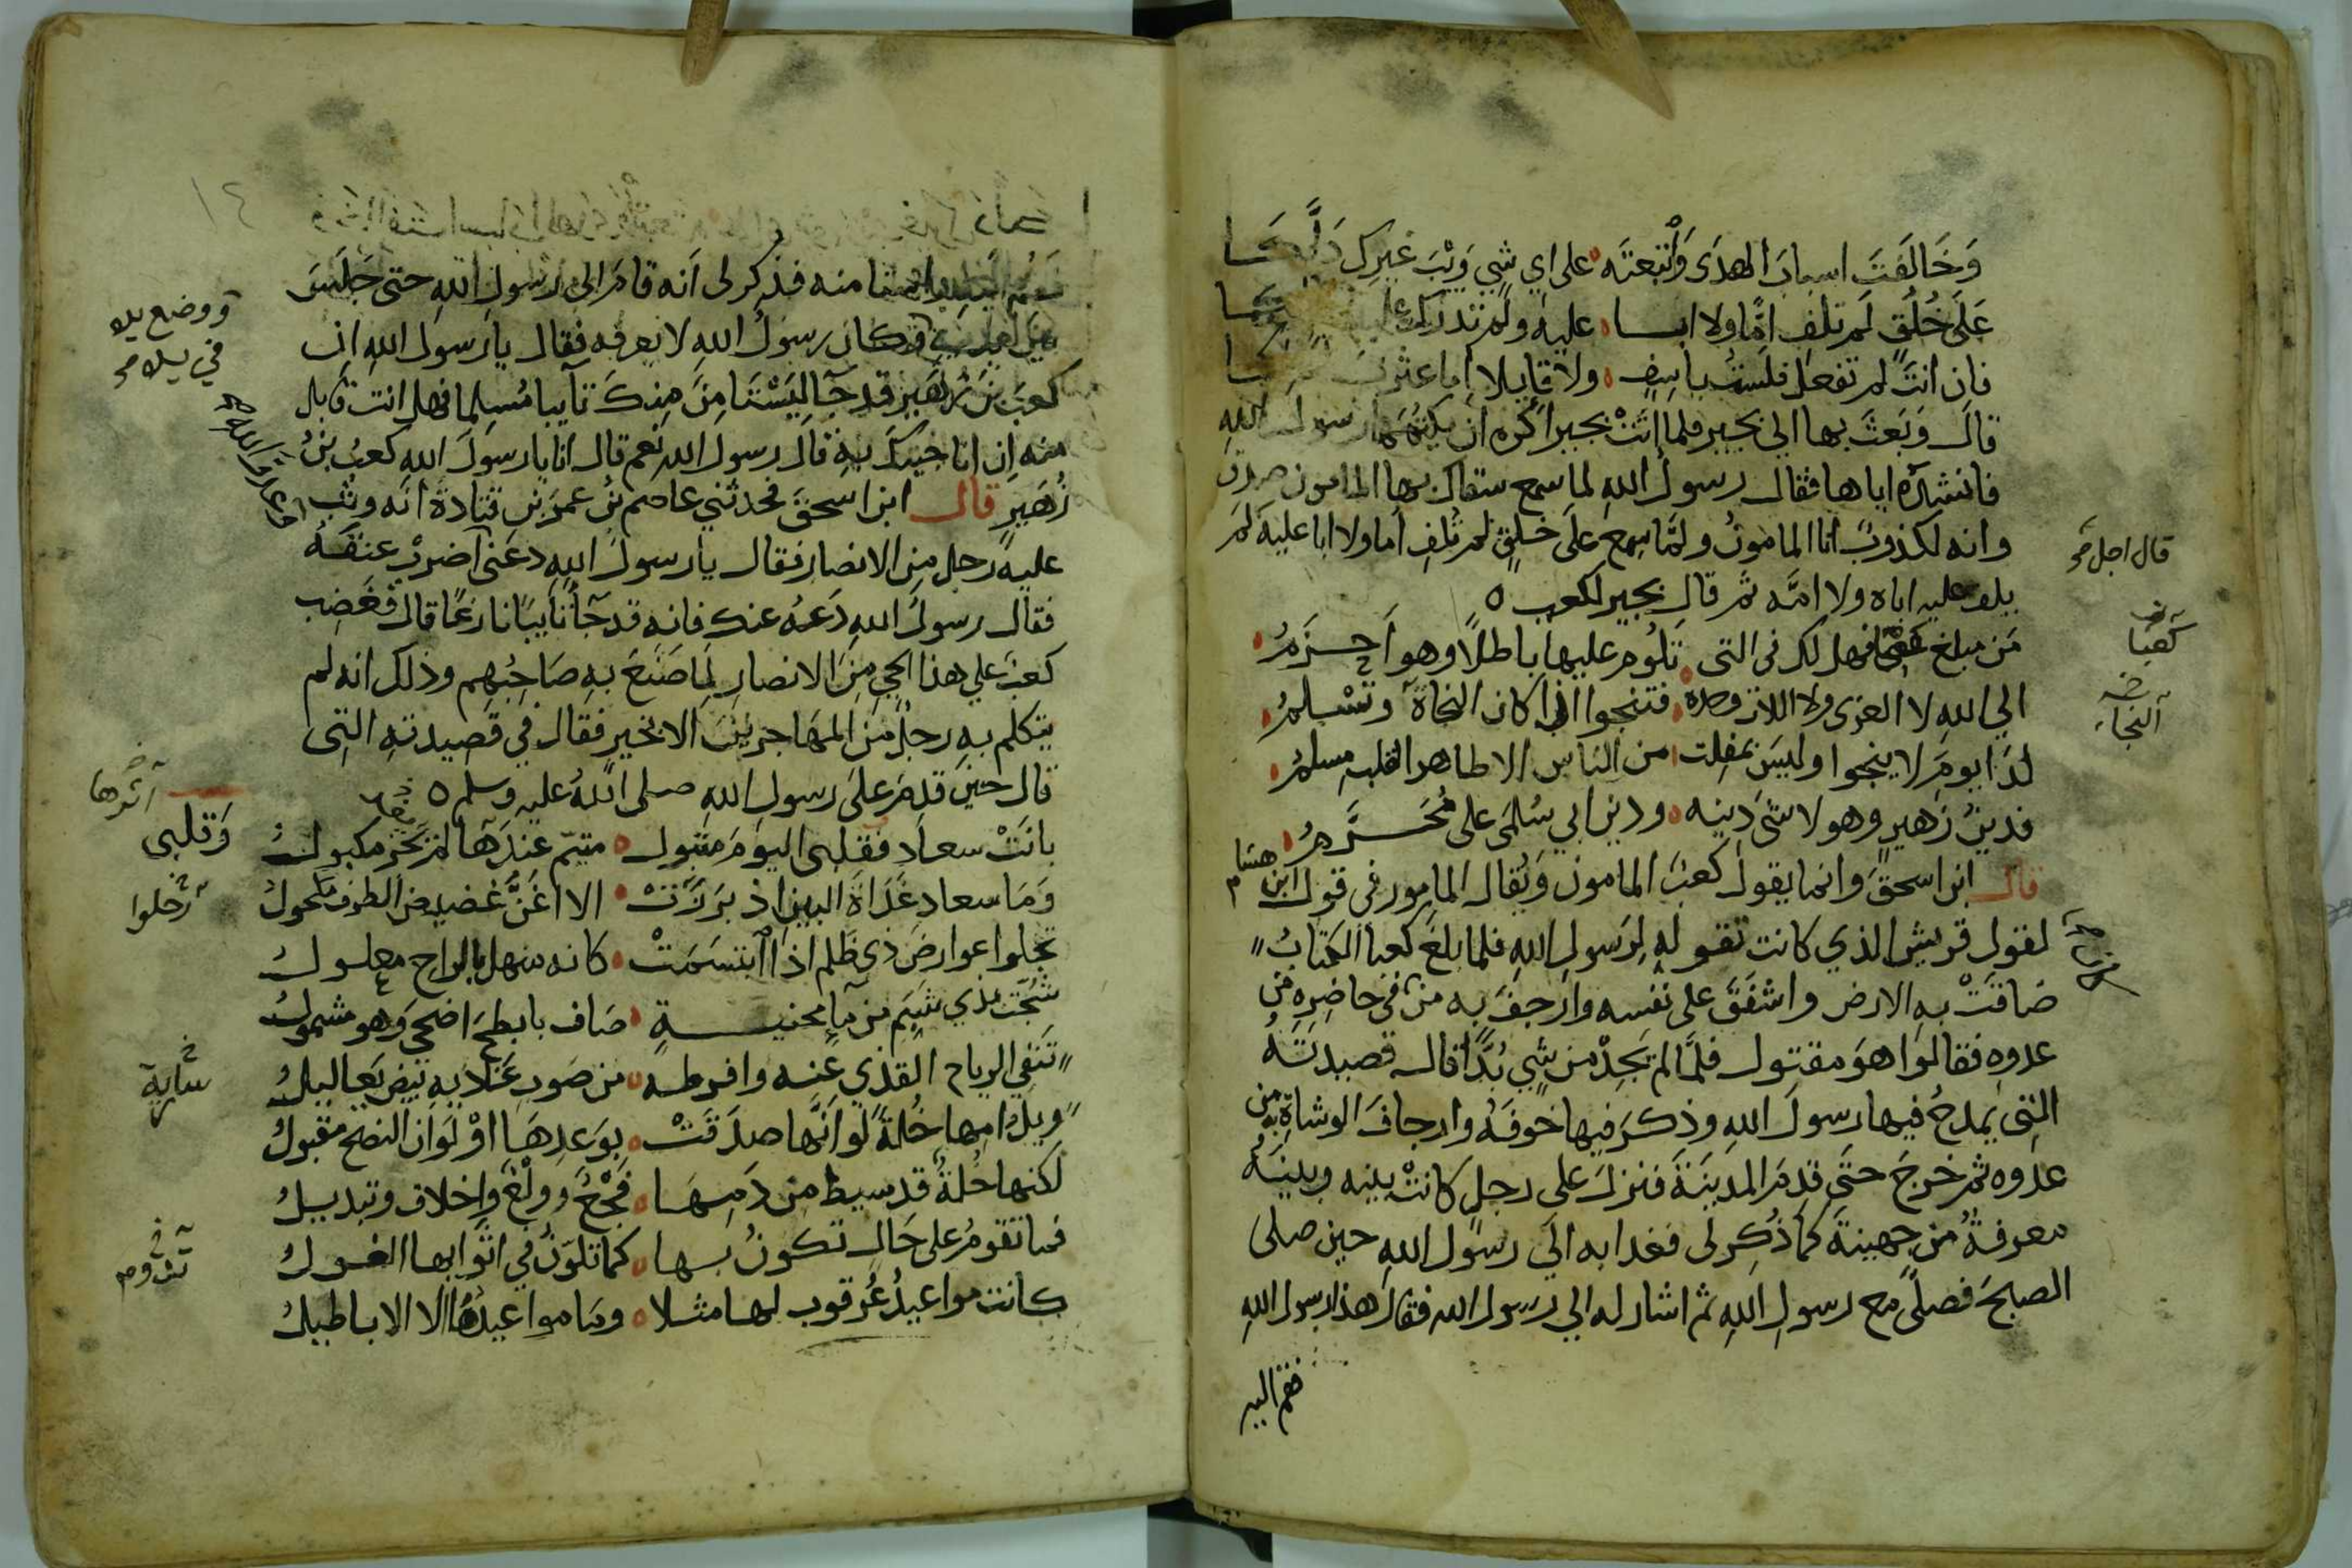 وَخَالَفتَ اسبابَ الهدَى وَٱتبعتَه على اي شيٍ وَيْبَ غيرك دَلَّكَا
عَلَى خُلُقٍ لم تلف امًّا ولا ابا عليه ولم تدرك عليه
فان انتَ لم تفعل فلستُ باسِفٍ ولا قايلا اما عثرت
قالَ وَبَعثَ بها الي بجيرٍ فلما اتَتْ بجيرا كره ان يكتمها رسول الله
فانشدَه اياها فقال رسول اللهِ لما سمع سقاك بها المامون صدق
وانه لكذوبٌ انا المامونُ ولمَّا سمع عَلَى خلقٍ لم تُلفِ اما ولا ابا عليهِ لم
قال اجل
يلف عليه اباه ولا امَّه ثم قال بجير لكعبٍ
مَن مبلغ كعبًا فهل لك في التي تلُوم عليها باطلًا وهو اَحزَمُ
كعبًا
الي اللهِ لا العزى ولا اللات وحده فتنجوا اذا كان النجاة وتسْلمُ
النجاء
لدَا يومَ لا ينجوا وليسَ بمفلت من الناس الا طاهر القلب مسلمُ
فدينُ زهيرٍ وهو لا شيَ دينه ودين ابي سُلمَى على مُحَرَّمُ
قال ابن اسحقَ وانما يقول كعبٌ المامون وَيُقال المامور في قول ابن هشام
لقول قريشٍ الذي كانت تقوله لِرَسولِ اللهِ فلما بلغَ كعبا الكتابُ
ضاقتْ به الارض واشفَقَ على نفسه وارجفَ به من في حاضره من
عدوِه فقالوا هوَ مقتول فلمَّا لم يَجِدْ من شيٍ بُدًّا قال قصيدتَهُ
التِى يمدحُ فيها رسولَ اللهِ وذكرَ فيها خوفَهُ وارجافَ الوشاةِ به من
عدوه ثم خرجَ حتَى قدمَ المدينَةَ فنزلَ على رجلٍ كانتْ بينه وبينَهُ
معرفةٌ من جهينةَ كمَا ذُكِر لى فغدا به الَي رسول اللهِ حين صلى
الصبحَ فصلَّى مع رسولِ اللهِ ثم اشار له الي رسول الله فقال هذا رسول الله
فقم اليه
٤١
فقم اليه فاستامنه فذكر لى انه قامَ الى رسولِ اللهِ حتى جَلَسَ
ووضع يده
في يده
اليه وكان رسولُ اللهِ لا يعرفه فقال يا رسولَ اللهِ ان
كعبَ بنَ زهَيرٍ قد جَآ لِيَسْتَامِنَ مِنكَ تآيبا مُسلِما فهل انت قابل
منه اِن انا جيتُكَ بهِ قال رسول الله نعم قال انا يا رسولَ الله كعبُ بنُ
زُهَيرٍ قال ابن اسحقَ فحدثني عاصم بنُ عمرَ بنِ قتادةَ انه وثبَ
عليه رجل من الانصار فقال يا رسول اللهِ دعَنى اضربْ عنقَهُ
فقال رسولُ اللهِ دَعهُ عنك فانه قد جآ تايبًا نازعًا قال فغَضِب
كعبٌ علي هذا الحي مِنَ الانصارِ لِمَا صَنَعَ بهِ صَاحِبُهم وذلك انه لم
يتكلم بهِ رجلٌ منَ المهَاجرينَ الا بخيرٍ فقال في قَصِيدتهِ التى
قال حينَ قدِمَ علَى رسولِ اللهِ صلى اللهُ عليه وسلم
بانَتْ سعادِ فقلبى اليومَ متبول متيّم عندَها لم يُجْز مكبولُ
اثرها
وَقلبي
وَمَا سعاد غَدَاةَ البينِ اذ برَزَتْ الا اغَنُّ غضيضُ الطرف مكحولُ
رحلوا
تجلوا عوارضَ ذي ظَلم اذا ابتسَمَتْ كانه منهل بالراح معلولُ
شُجَّت بذي شَبَم من مآ محنيةٍ صَاف بابطحَ اضحى وَهو مشمولُ
تَنفِي الرياح القذي عنه وافرطه من صَوبِ غادية بيض يَعاليلُ
سارية
ويلُ امِها خُلةً لو اَنّها صدَقَتْ بوَعدِهَا اوْ لوَ ان النصح مقبولُ
لكنها خُلةٌ قد سيط من دَمِهَا فَجْعٌ وولْعٌ واِخلاف وتبديلُ
فما تقومُ على حَالٍ تكونُ بها كما تلوّنُ في اثوابها الغولُ
تدوم
كانت مواعيدُ عُرقوب لها مثلا ومَا مواعيدُهَا الا الاباطيلُ